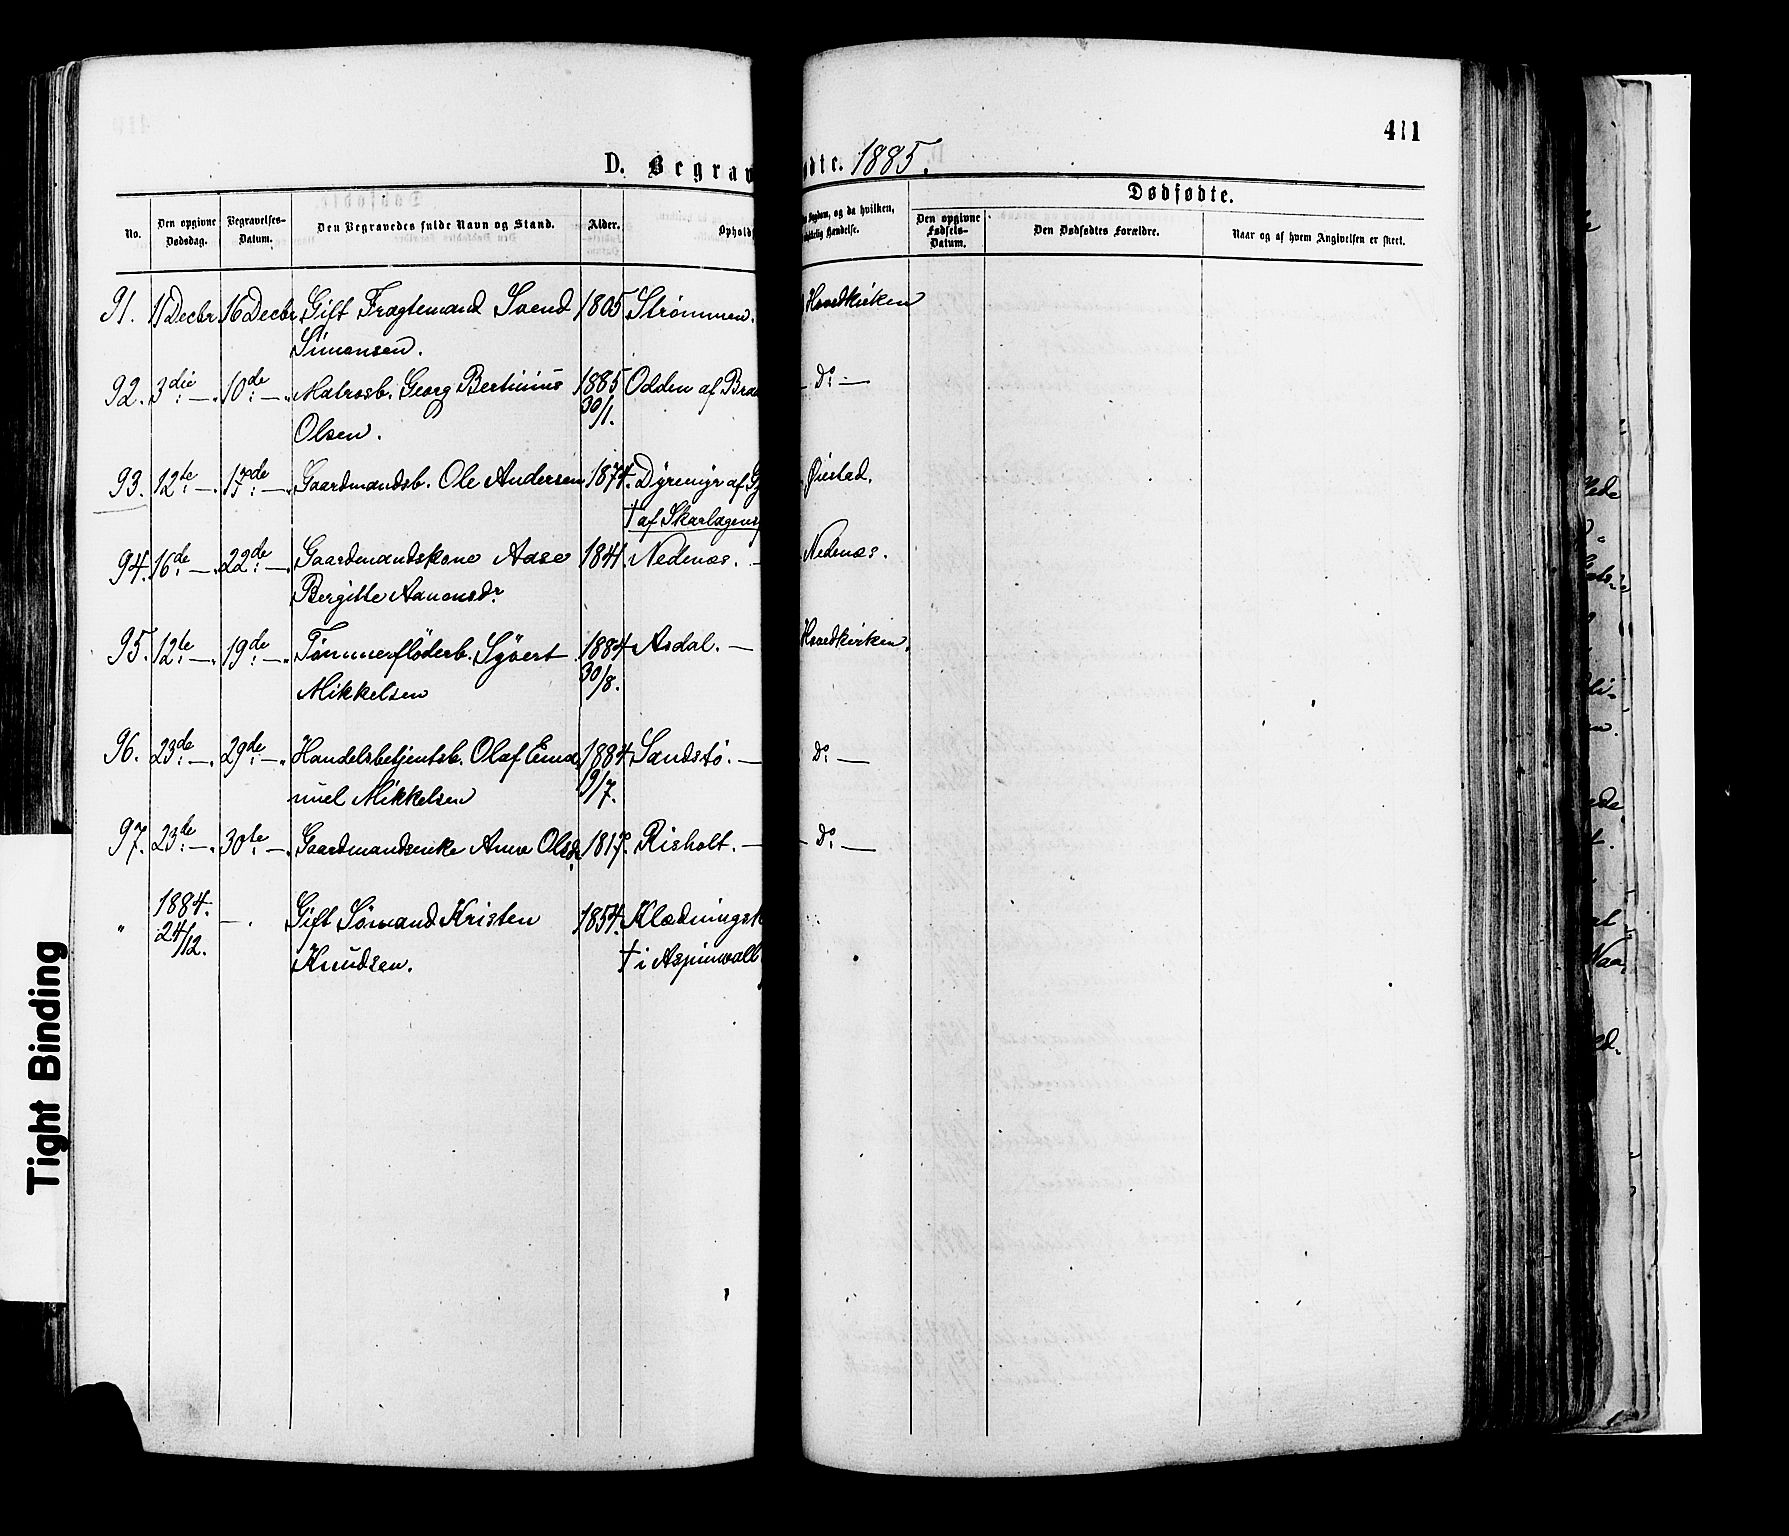 411
D. Begrav
dte. 1885.
Dødfødte.
No.
Den opgivne Dødsdag.
Begravelses-Datum.
Den Begravedes fulde Navn og Stand.
Alder.
Sygdom, og da hvilken,
Hændelse.
Den opgivne Fødsels-Datum.
Den Dødfødtes Forældre.
Naar og af hvem Angivelsen er skeet.
91. 11 Decbr. 16 Decbr. Gift Fragtemand Svend 1805 Strømmen. Hovedkirken
Simonsen.
92. 3die — 10de — Matrosb. Georg Bertinius 1885 Odden af Bra — Do —
30/1.
Olsen.
93. 12te — 17de — Gaardmandsb. Ole Andersen 1874. Dyremyr af Øiestad.
† af Skarlagens
94. 16de — 22de — Gaardmandskone Aase 1841. Nedenæs. — Nedenæs.
Bergitte Aanonsdr.
95. 12te — 19de — Tømmerfløderb. Syvert 1884 Asdal. — Hovedkirken.
30/8.
Mikkelsen
96. 23de — 29de — Handelsbetjentsb. Olaf Ema- 1884 Sandstø. — Do —
19/7.
nuel Mikkelsen
97. 23de — 30te — Gaardmandsenke Anne Olsdr. 1817. Risholt. — Do —
" 1884. — Gift Sømand Kristen 1854. Klædningsk
24/12.
Knudsen. † i Aspinwall
Tight Binding